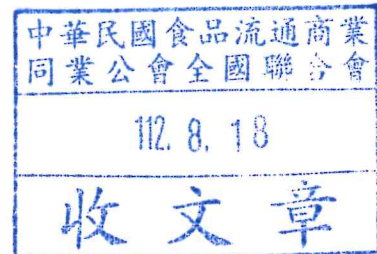 中華民國食品流通商業
同業公會全國聯合會
112. 8. 18
收文章